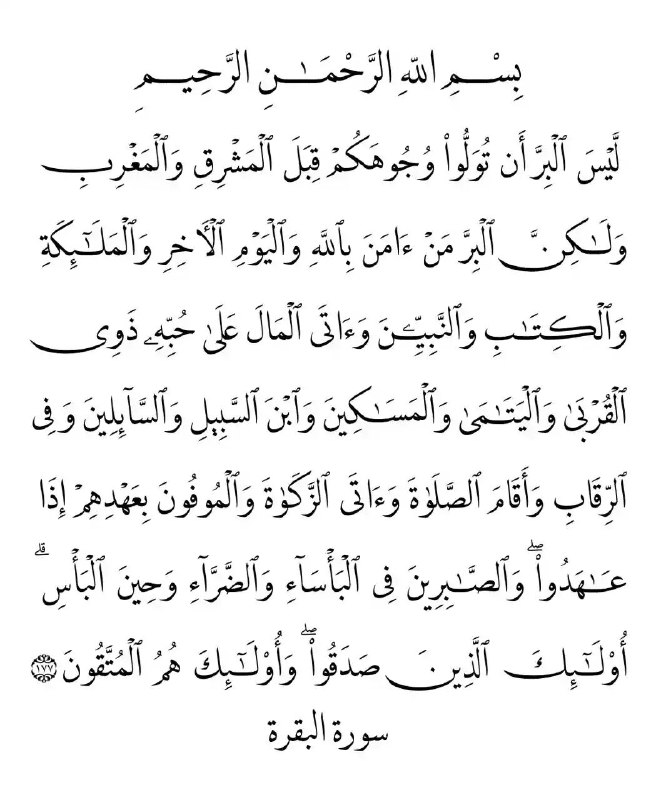 بِسْمِ اللَّهِ الرَّحْمَـٰنِ الرَّحِيمِ
لَّيْسَ ٱلْبِرَّ أَن تُوَلُّوا۟ وُجُوهَكُمْ قِبَلَ ٱلْمَشْرِقِ وَٱلْمَغْرِبِ
وَلَـٰكِنَّ ٱلْبِرَّ مَنْ ءَامَنَ بِٱللَّهِ وَٱلْيَوْمِ ٱلْـَٔاخِرِ وَٱلْمَلَـٰٓئِكَةِ
وَٱلْكِتَـٰبِ وَٱلنَّبِيِّـۧنَ وَءَاتَى ٱلْمَالَ عَلَىٰ حُبِّهِۦ ذَوِى
ٱلْقُرْبَىٰ وَٱلْيَتَـٰمَىٰ وَٱلْمَسَـٰكِينَ وَٱبْنَ ٱلسَّبِيلِ وَٱلسَّآئِلِينَ وَفِى
ٱلرِّقَابِ وَأَقَامَ ٱلصَّلَوٰةَ وَءَاتَى ٱلزَّكَوٰةَ وَٱلْمُوفُونَ بِعَهْدِهِمْ إِذَا
عَـٰهَدُوا۟ ۖ وَٱلصَّـٰبِرِينَ فِى ٱلْبَأْسَآءِ وَٱلضَّرَّآءِ وَحِينَ ٱلْبَأْسِ ۗ
أُو۟لَـٰٓئِكَ ٱلَّذِينَ صَدَقُوا۟ ۖ وَأُو۟لَـٰٓئِكَ هُمُ ٱلْمُتَّقُونَ ١٧٧
سورة البقرة